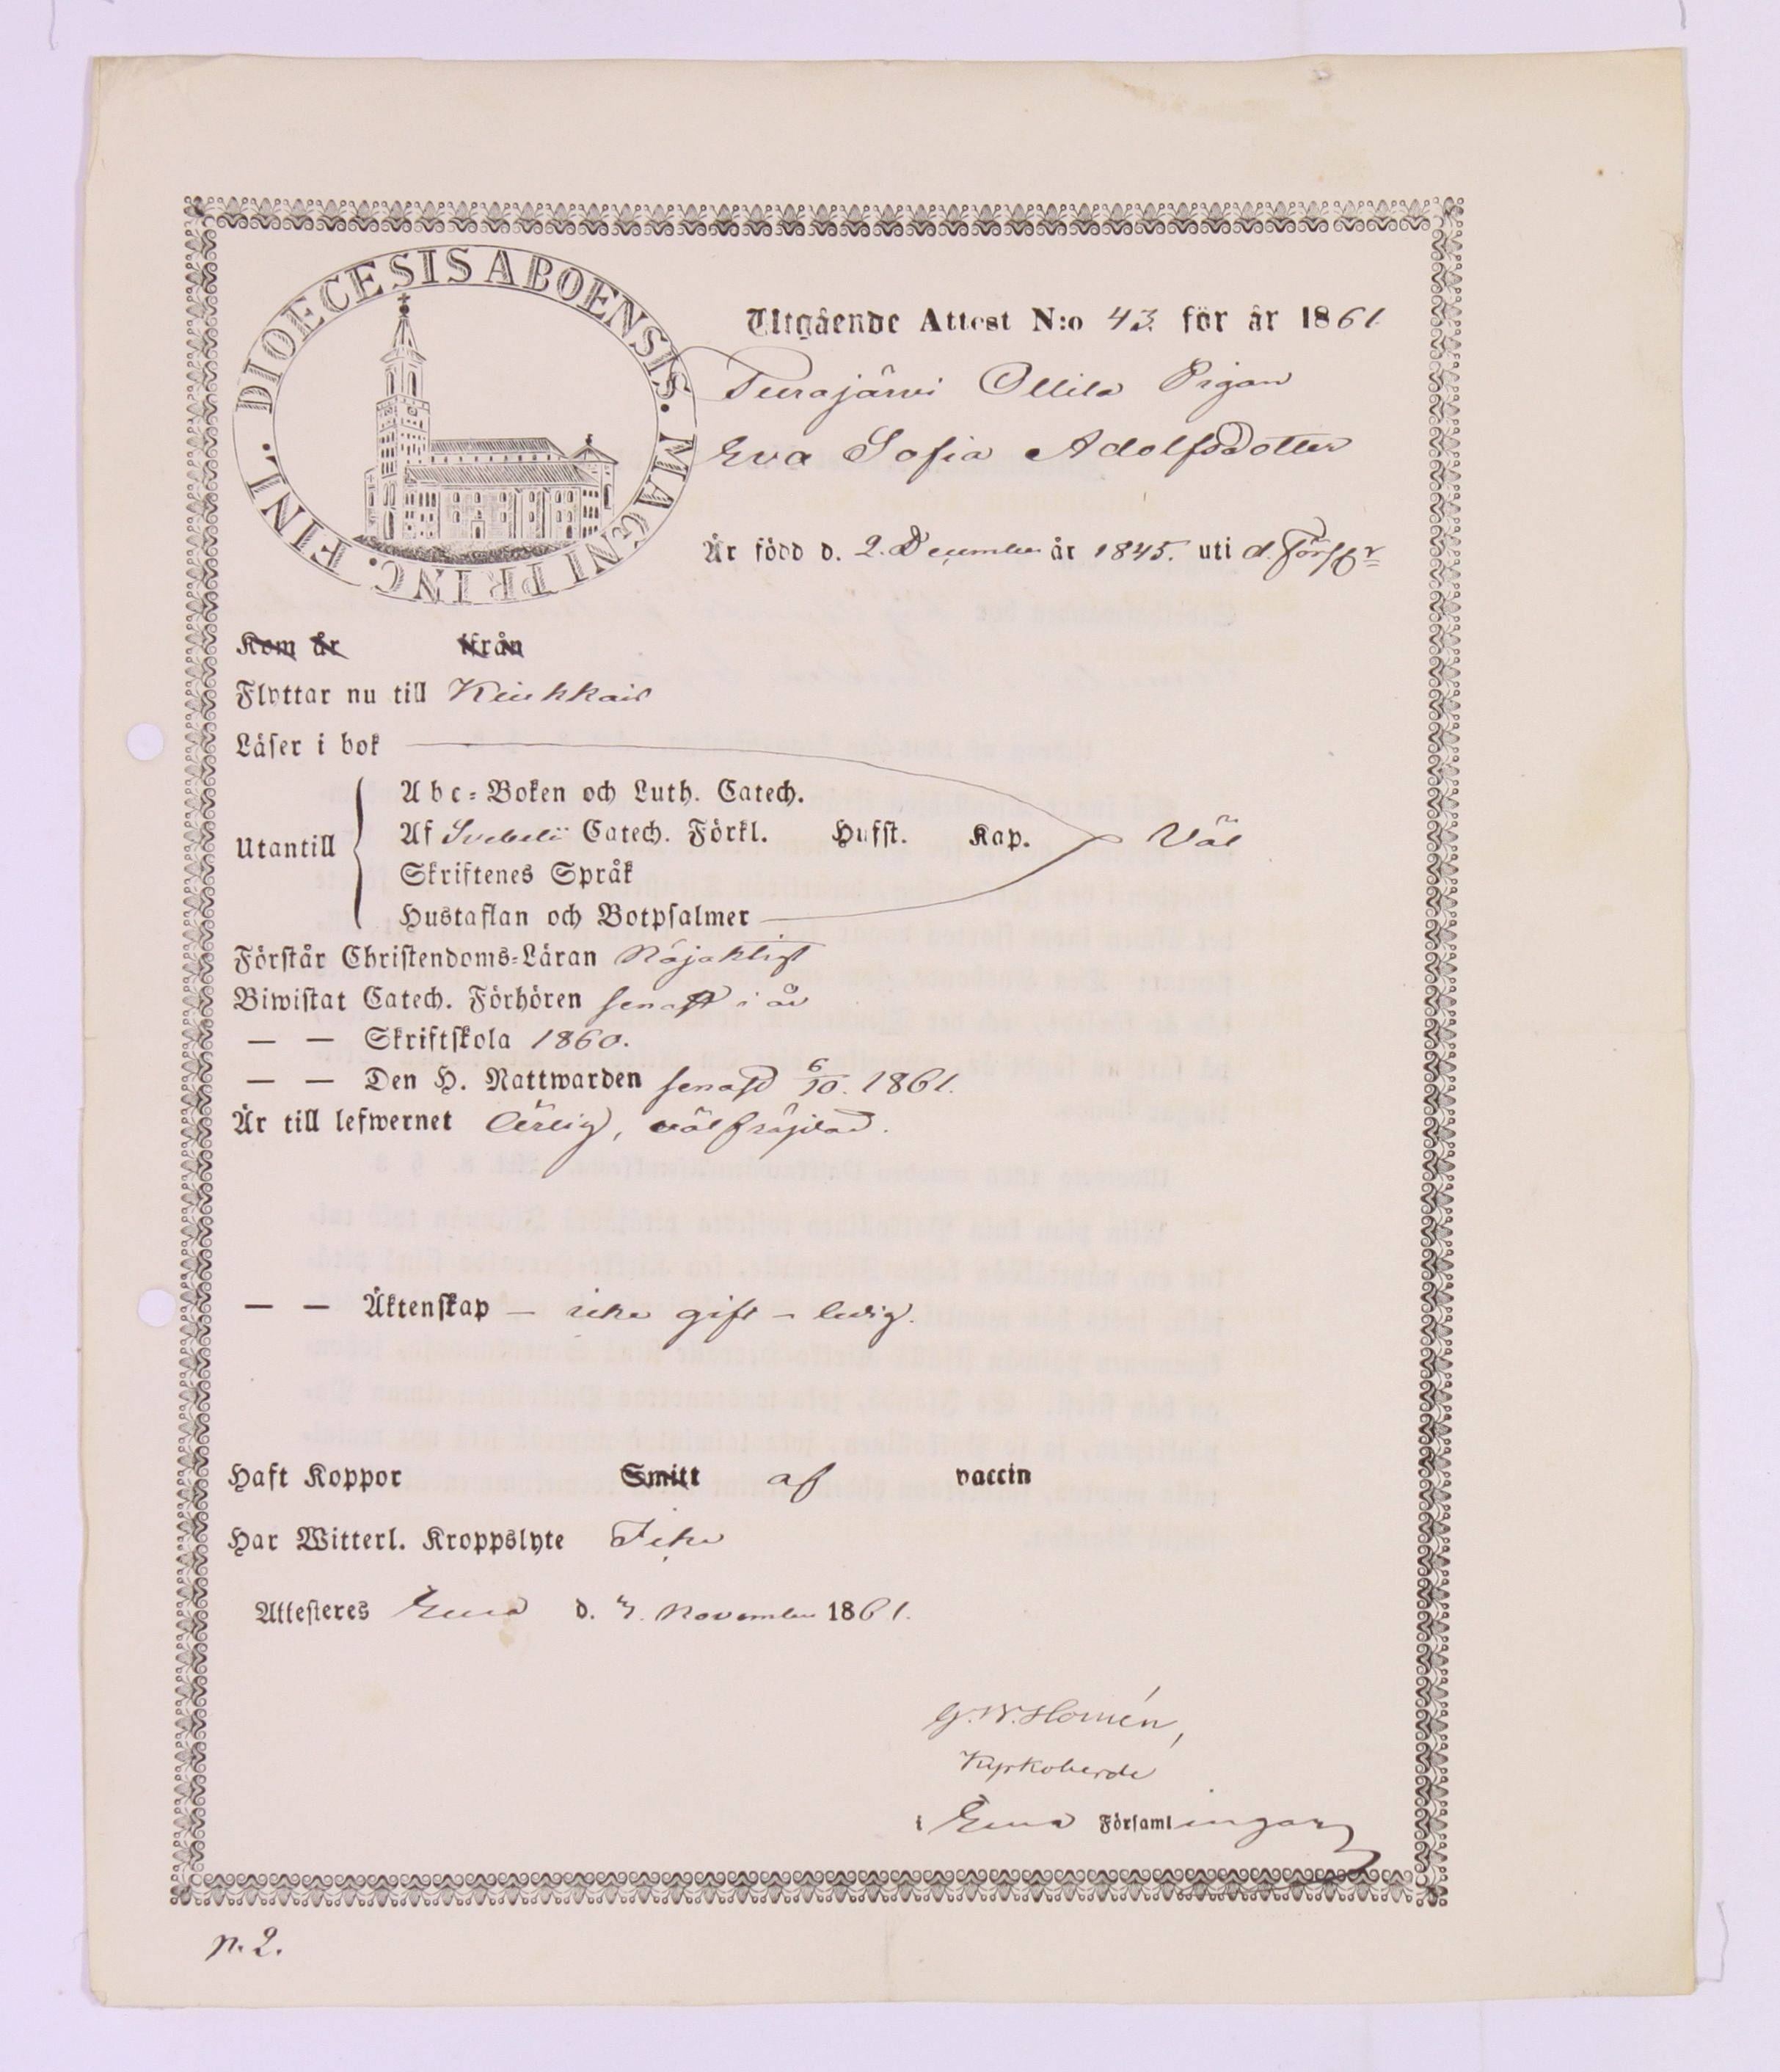 DIOECESIS ABOENSIS. MAGNI PRINC. FINL.
Utgående Attest N:o 43. för år 1861.
Turajärvi Ollila Pigan
Eva Sofia Adolfsdotter
Är född d. 2. December år 1845. uti d. Förs:gr
Kom år Ifrån
Flyttar nu till Kiukkais
Läser i bok
Utantill
Abc-Boken och Luth. Catech.
Af Svebelii Catech. Förkl. Hufst. Kap. Väl
Skriftenes Språk
Hustaflan och Botpsalmer
Förstår Christendoms-Läran Nöjaktigt
Biwistat Catech. Förhören senast i år
— — Skriftskola 1860.
— — Den H. Nattwarden senast 6/10. 1861.
Är till lefwernet ärlig, välfräjdad.
— — Äktenskap — icke gift – ledig.
Haft Koppor Smitt af vaccin
Har Witterl. Kroppslyte Icke
Attesteres Eura d. 7. November 1861.
G. W. Homén,
Kyrkoherde
i Eura Församlingar
p. 2.